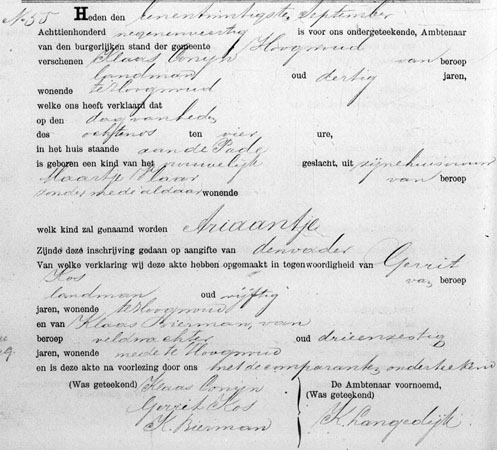 No 55 Heden den eenentwintigste September
Achttienhonderd negenenveertig is voor ons ondergeteekende, Ambtenaar
van den burgerlijken stand der gemeente Hoogwoud
verschenen Klaas Conijn van beroep
landman oud dertig jaren,
wonende te Hoogwoud
welke ons heeft verklaard dat
op den dag van heden
des ochtends ten vier ure,
in het huis staande aan de Pade
is geboren een kind van het vrouwelijk geslacht, uit zijne huisvrouw
Maartje Haar van beroep
zonder mede aldaar wonende
welk kind zal genaamd worden Ariaantje
Zijnde deze inschrijving gedaan op aangifte van den vader
Van welke verklaring wij deze akte hebben opgemaakt in tegenwoordigheid van Gerrit
Kos van beroep
landman oud vijftig
jaren, wonende te Hoogwoud
en van Klaas Bierman, van
beroep veldwachter oud drieenzestig
jaren, wonende mede te Hoogwoud
en is deze akte na voorlezing door ons met de comparanten onderteekend
(Was geteekend) Klaas Conyn
Gerrit Kos
K. Bierman
De Ambtenaar voornoemd,
(Was geteekend)
K. Langedijk